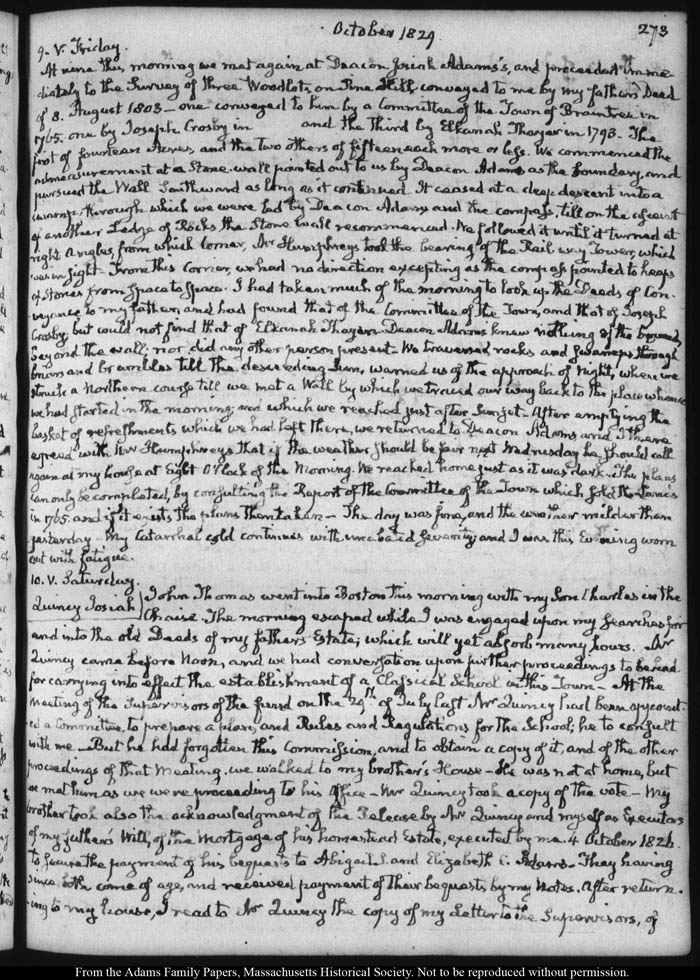 October 1829
273
9. V. Friday.
At nine this morning we met again at Deacon Josiah Adams's, and proceeded imme
diately to the Survey of three Woodlots, on Pine Hill, conveyed to me by my father's Deed
of 8. August 1803 — one conveyed to him by a Committee of the Town of Braintree in
1765. one by Joseph Crosby in and the Third by Elkanah Thayer in 1793. The
first of fourteen Acres, and the two others of fifteen each more or less. We commenced the
admeasurement at a Stone-wall pointed out to us by Deacon Adams as the boundary, and
pursued the Wall Southward as long as it continued. It ceased at a deep descent into a
swamp, through which we were led by Deacon Adams and the compass, till on the ascent
of another Ledge of Rocks the Stone wall recommenced. We followed it until it turned at
right Angles, from which Corner, Mr Humphreys took the bearing of the Rail-way Tower, which
was in sight. From this Corner, we had no direction excepting as the compass pointed to heaps
of Stones from Space to Space. I had taken much of the morning to look up the Deeds of Con-
veyance to my father, and had found that of the Committee of the Town, and that of Joseph
Crosby, but could not find that of Elkanah Thayer. Deacon Adams knew nothing of the bounds,
beyond the wall; nor did any other person present. We traversed rocks and swamps through
briars and brambles till the descending Sun, warned us of the approach of Night, when we
struck a Northern course till we met a Wall by which we traced our way back to the place whence
we had started in the morning; and which we reached just after Sunset. After emptying the
basket of refreshments which we had left there, we returned to Deacon Adams and I there
agreed with Mr Humphreys that if the weather should be fair next Wednesday he should call
again at my house at Eight O'Clock of the Morning. We reached home just as it was dark. The plans
can only be completed, by consulting the Report of the Committee of the Town which sold the Lands
in 1765. and if it exists, the plans then taken — The day was fine, and the weather milder than
yesterday — My Catarrhal cold continues with unabated severity and I was this Evening worn
out with fatigue.
10. V. Saturday.
Quincy Josiah John Thomas went into Boston this morning with my Son Charles in the
Chaise. The morning escaped while I was engaged upon my searches for
and into the old Deeds of my father's Estate; which will yet absorb many hours. Mr
Quincy came before Noon, and we had conversation upon further proceedings to be had
for carrying into effect the establishment of a Classical School in this Town — At the
meeting of the Supervisors of the fund on the 29th of July last Mr Quincy had been appoint-
ed a Committee, to prepare a plan, and Rules and Regulations for the School; he to consult
with me — But he had forgotten this Commission, and to obtain a copy of it, and of the other
proceedings of that Meeting, we walked to my brother's House — He was not at home, but
we met him as we were proceeding to his Office — Mr Quincy took a copy of the vote — My
brother took also the acknowledgment of the Release by Mr Quincy and myself as Executors
of my father's Will, of the Mortgage of his homestead Estate, executed by me 4 October 1826.
to secure the payment of his bequests to Abigail S. and Elizabeth C. Adams — They having
since, both come of age, and received payment of their bequests, by my Notes. After return-
ing to my house, I read to Mr Quincy the copy of my Letter to the Supervisors, of
From the Adams Family Papers, Massachusetts Historical Society. Not to be reproduced without permission.